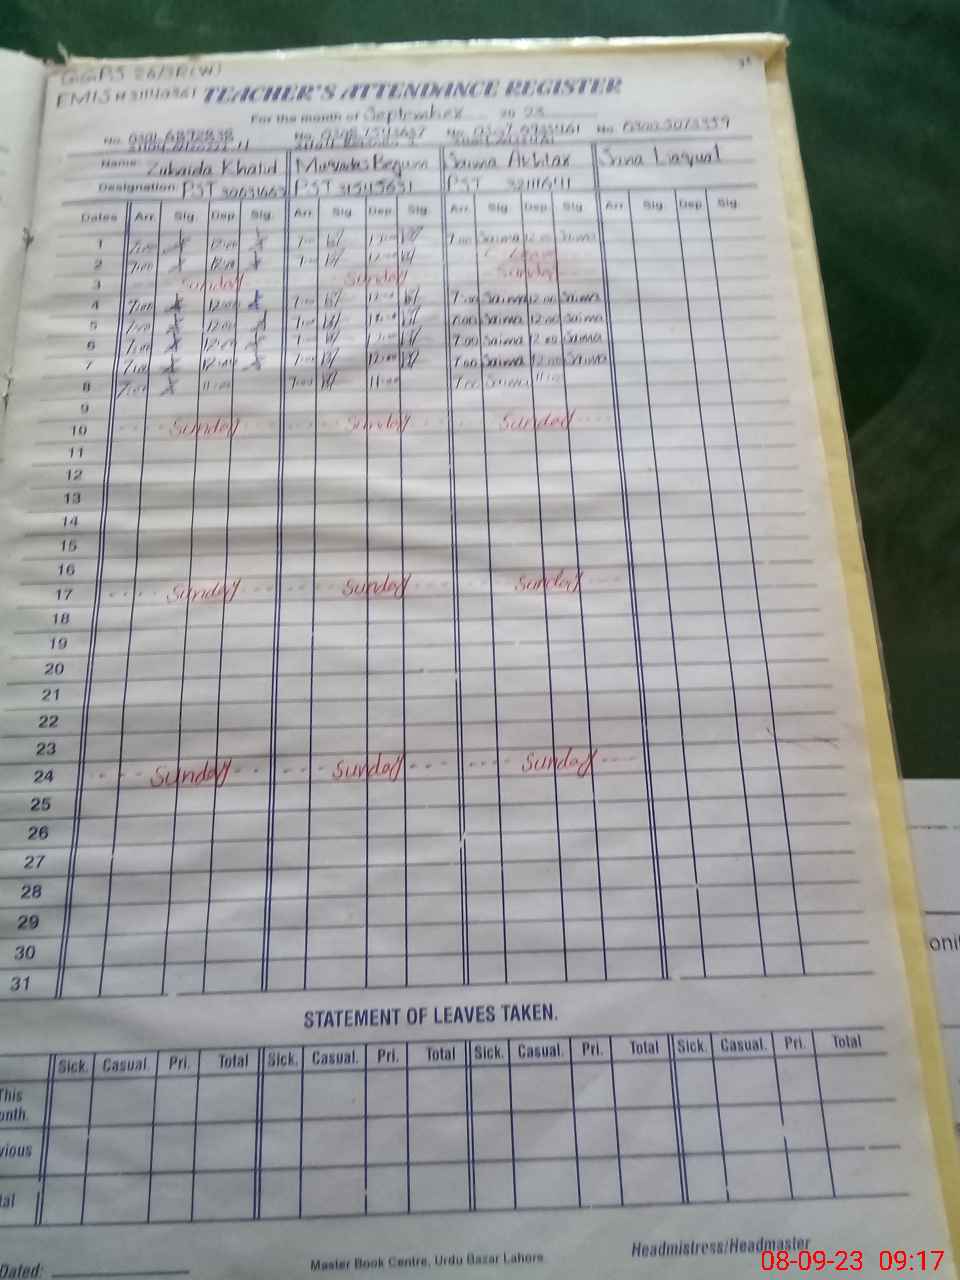 GGPS 26/3R(W)
EMIS # 31140361 TEACHER'S ATTENDANCE REGISTER
For the month of September 20 23
No. No. No. No. 03003073359
Name: Zubaida Khalid Begum Saima Akhtar Sana Liaquat
Designation: PST PST PST
Dates Arr. Sig. Dep. Sig. Arr. Sig. Dep. Sig. Arr. Sig. Dep. Sig. Arr. Sig. Dep. Sig.
1 7:00 12:00 7:00 12:00 7:00 Saima 12:00 Saima
2 7:00 12:00 7:00 12:00 Leave
3 Sunday Sunday Sunday
4 7:00 12:00 7:00 12:00 7:00 Saima 12:00 Saima
5 7:00 12:00 7:00 12:00 7:00 Saima 12:00 Saima
6 7:00 12:00 7:00 12:00 7:00 Saima 12:00 Saima
7 7:00 12:00 7:00 12:00 7:00 Saima 12:00 Saima
8 7:00 11:00 7:00 11:00 7:00 Saima 11:00
9
10 Sunday Sunday Sunday
11
12
13
14
15
16
17 Sunday Sunday Sunday
18
19
20
21
22
23
24 Sunday Sunday Sunday
25
26
27
28
29
30
31
STATEMENT OF LEAVES TAKEN.
Sick. Casual. Pri. Total Sick. Casual. Pri. Total Sick. Casual. Pri. Total Sick. Casual. Pri. Total
This
onth.
vious
tal
Dated: Master Book Centre, Urdu Bazar Lahore. Headmistress/Headmaster
onit
08-09-23 09:17